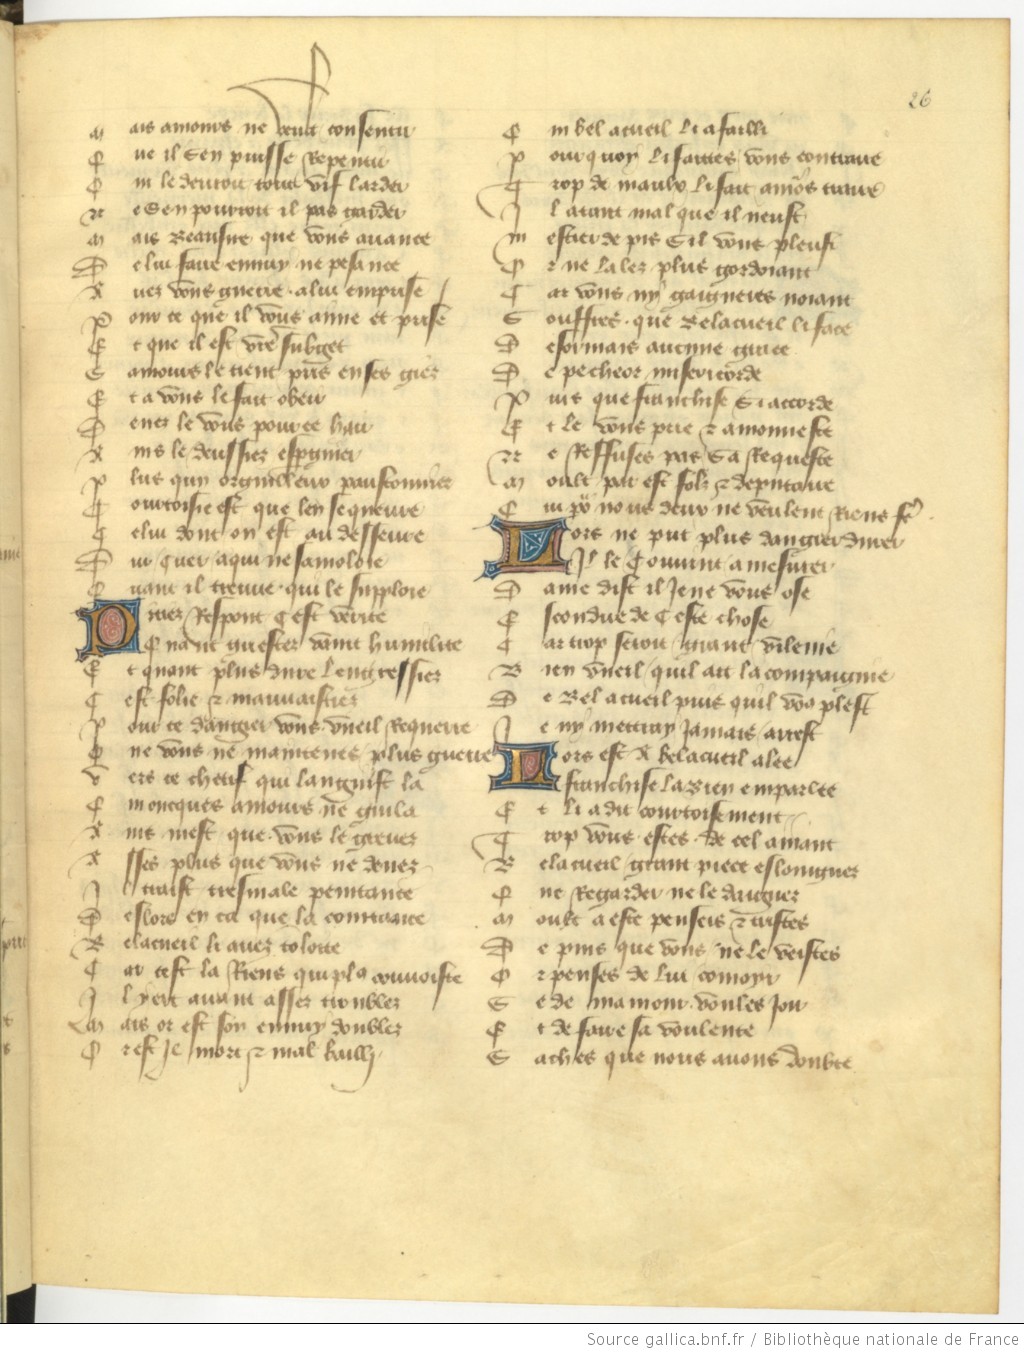 26
Mais amours ne veult consentir
Que il sen puisse repentir
Qui le devroit tout vif larder
Ne sen pourroit il pas garder
Mais beausire que vous avance
De lui faire ennuy ne pesance
Avez vous guerre a lui emprise
Pour ce que il vous aime et prise
Et que il est vre subget
Samours le tient pris en ses giez
Et a vous le fait obeir
Devez le vous pour ce hair
Ains le deussiez espgnier
Plus quun orguilleux pautonnier
Courtoisie est que len sequeure
Celui dont on est au desseure
Dur cuer a qui ne samoloie
Quant il treuve qui le supploie
Pitiez respont cest verite
Quant grester vaint humilite
Et quant plus dure lengressier
Cest folie et mauvaistiez
Pour ce dangier vous vueil requerre
Que vous ne maintenes plus guerre
Vers ce chetif qui languist la
Qui oncques amours ne guila
Avis mest que vous le grevez
Asses plus que vous ne devez
Il traist tresmale penitance
Des lors en ca que la cointance
Belacueil li avez tolotte
Car cest la riens qui pla convoiste
Il yert avant assez troublez
Mais or est son ennuy doublez
Or est Je mort et mal bailli
Qubel acueil li a failli
Pour quoy li faittes vous contraire
Trop de maulx li fait amos traire
Il a tant mal que il neust
Mestier de pis sil vous pleust
Or ne lalez plus gordoiant
Car vous ny gaigneres noiant
Souffres que Belacueil li face
Desormais aucune grace
De pecheor misericorde
Puis que franchise si accorde
Et le vous prie et amonneste
Ne reffuses pas sa requeste
Moult par est folz et deputaire
Qui po nous deux ne veulent riens fe
Lors ne put plus dangier durer
Il le convint amesurer
Dame dist il Je ne vous ose
Escondire de ceste chose
Car trop seroit grant vilenie
Bien vueil quil ait la compaignie
De Bel acueil puis quil vos plest
Je ny mettray Jamais arrest
Lors est a belacueil alee
Franchise la bien emparlee
Et li a dit courtoisement
Trop vous estes de cel amant
Belacueil grant piece esloingniez
Que regarder ne le daigniez
Moult a este penseis et tristes
De puis que vous ne le veistes
Or penses de lui conioyr
Se de mamour voules Joir
Et de faire sa voulente
Saches que nous avons donbte
Source gallica.bnf.fr / Bibliothèque nationale de France